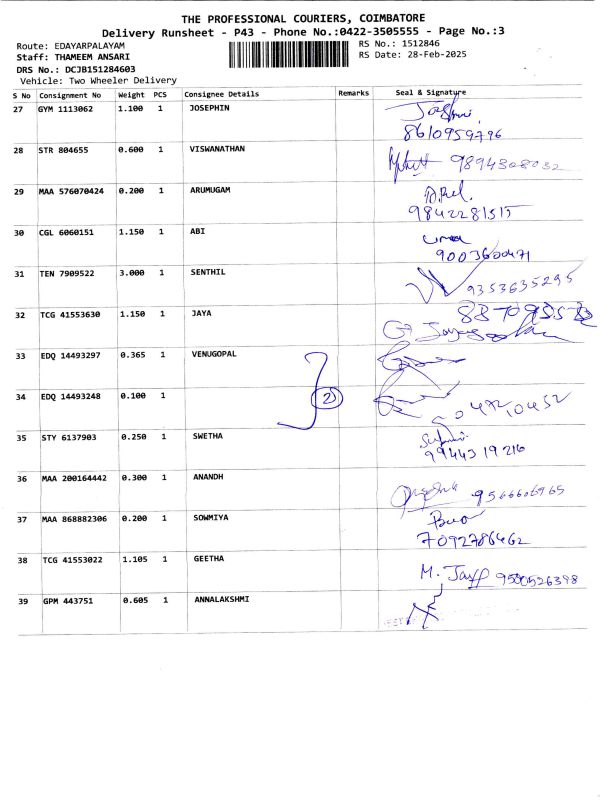 THE PROFESSIONAL COURIERS, COIMBATORE
Delivery Runsheet - P43 - Phone No.:0422-3505555 - Page No.:3
Route: EDAYARPALAYAM RS No.: 1512846
Staff: THAMEEM ANSARI RS Date: 28-Feb-2025
DRS No.: DCJB151284603
Vehicle: Two Wheeler Delivery
S No Consignment No Weight PCS Consignee Details Remarks Seal & Signature
27 GYM 1113062 1.100 1 JOSEPHIN
8610959796
28 STR 804655 0.600 1 VISWANATHAN 9894308032
29 MAA 576070424 0.200 1 ARUMUGAM
9842281515
30 CGL 6060151 1.150 1 ABI uma
9003600471
31 TEN 7909522 3.000 1 SENTHIL
9353635295
32 TCG 41553630 1.150 1 JAYA
33 EDQ 14493297 0.365 1 VENUGOPAL
34 EDQ 14493248 0.100 1 2
35 STY 6137903 0.250 1 SWETHA
9944319216
36 MAA 200164442 0.300 1 ANANDH
9566606965
37 MAA 868882306 0.200 1 SOWMIYA
7092786462
38 TCG 41553022 1.105 1 GEETHA
9500526398
39 GPM 443751 0.605 1 ANNALAKSHMI